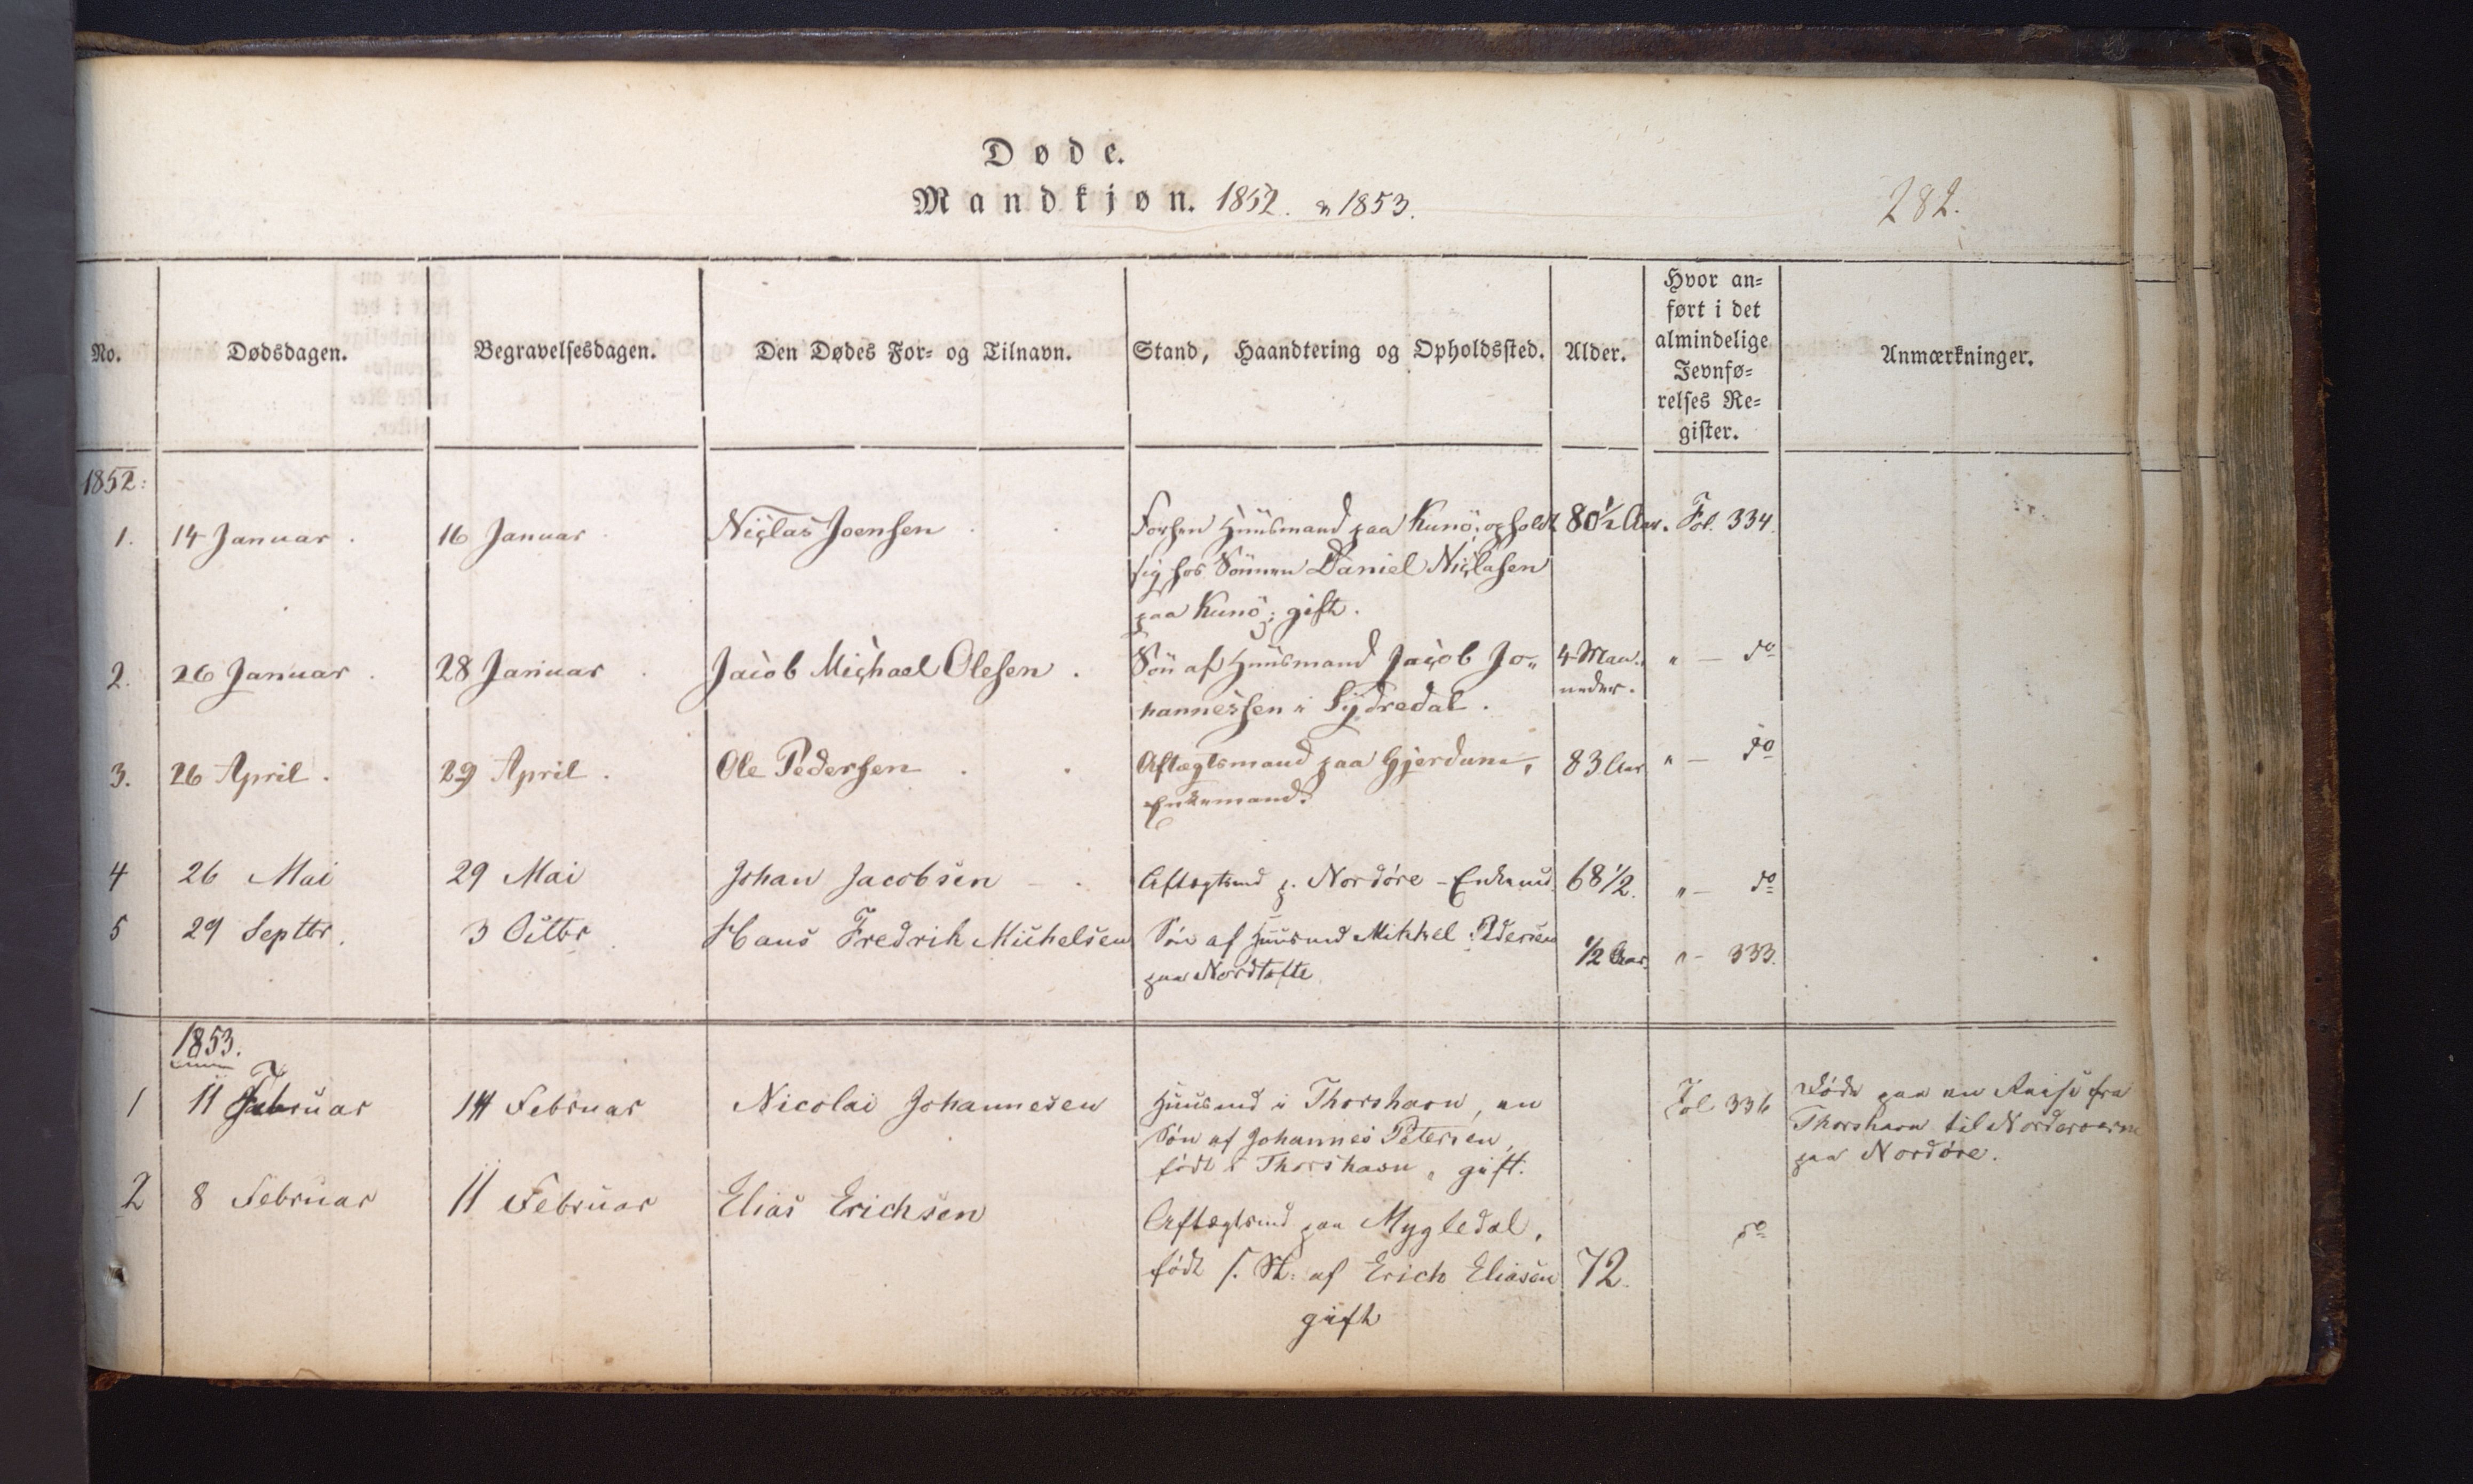 Døde.
Mandkjøn. 1852. & 1853.
282.
No.
Dødsdagen.
Begravelsesdagen.
Den Dødes For- og Tilnavn.
Stand, Haandtering og Opholdssted.
Alder.
Hvor an-
ført i det
almindelige
Jevnfø-
relses Re-
gister.
Anmærkninger.
1852:
1. 14 Januar. 16 Januar Niclas Joensen Forhen Huusmand paa Kunö; opholdt 80½ Aar. Fol. 334.
sig hos Sönnen Daniel Niclasen
paa Kunö; gift.
2. 26 Januar. 28 Januar. Jacob Michael Olesen. Sön af Huusmand Jacob Jo- 4 Maa- " — do
hannessen i Sydredal. neder.
3. 26 April. 29 April. Ole Pedersen. Aftægtsmand paa Gjerdum, 83 Aar " — do
Enkemand.
4 26 Mai 29 Mai Johan Jacobsen Aftægtsmd p. Nordøre - Enkemd 68 1/2. " — do
5 29 Septbr. 3 Octbr Hans Fredrik Michelsen Søn af Huusmd Mikkel Pedersen 1/2 Aar. " - 333.
paa Nordtofte
1853.
1 11 Februar 14 Februar Nicolai Johannesen Huusmd i Thorshavn, en Fol 336 Døde paa en Reise fra
Søn af Johannes Petersen, Thorshavn til Norderøerne
født i Thorshavn, gift. paa Nordøre.
2 8 Februar 11 Februar Elias Erichsen Aftægtsmd paa Mygledal, do
født s. St. af Erich Eliasen 72.
gift